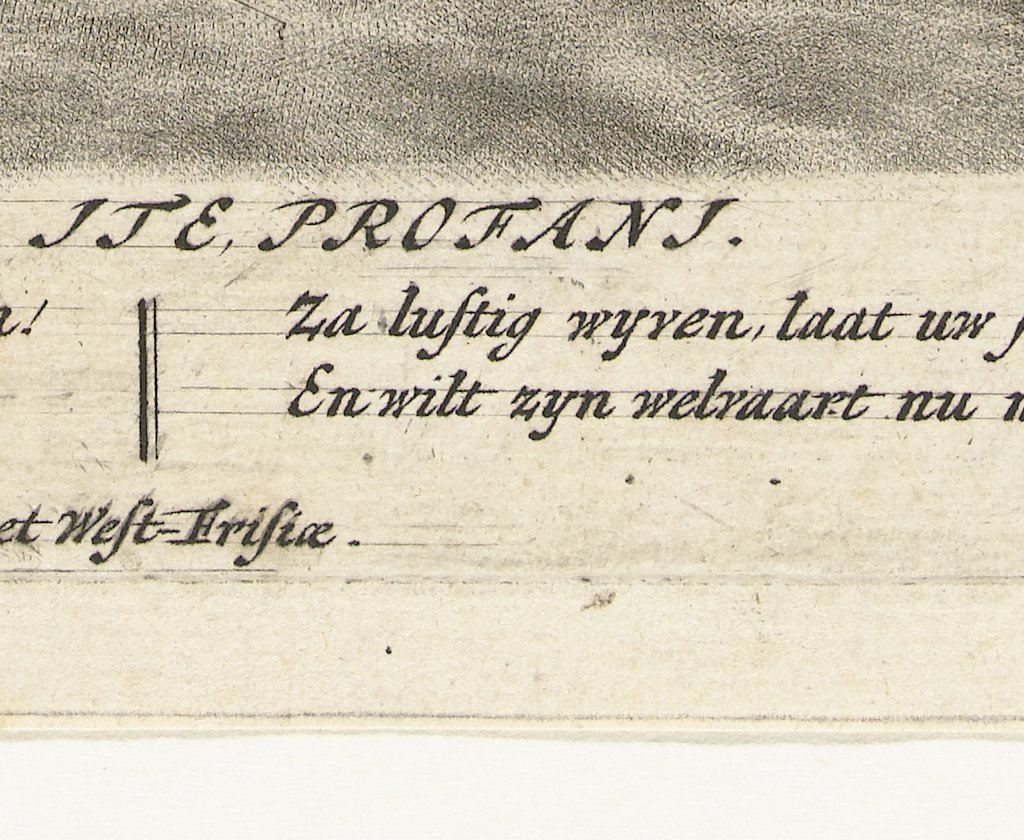 ITE, PROFANI.
Za lustig wyven, laat uw
En wilt zyn welvaart nu
et West-Frisiæ.